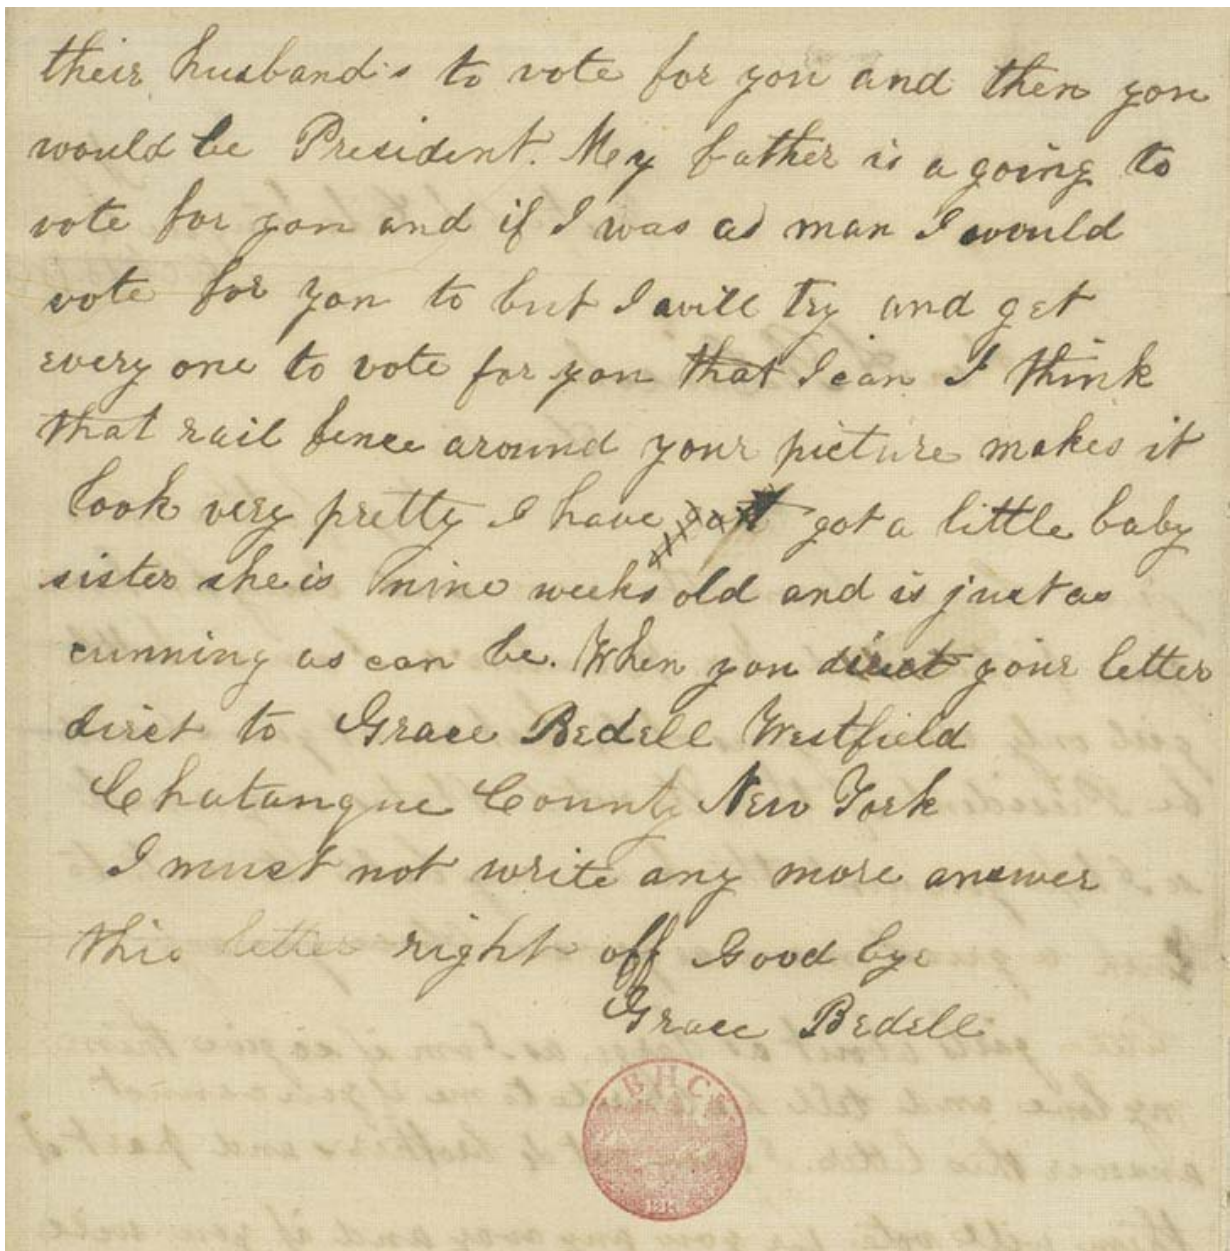 their husband's to vote for you and then you
would be President. My father is a going to
vote for you and if I was a man I would
vote for you to but I will try and get
every one to vote for you that I can I think
that rail fence around your picture makes it
look very pretty I have got a little baby
sister she is nine weeks old and is just as
cunning as can be. When you direct your letter
dirct to Grace Bedell Westfield
Chatauque County New York
I must not write any more answer
this letter right off Good bye
Grace Bedell
BHC